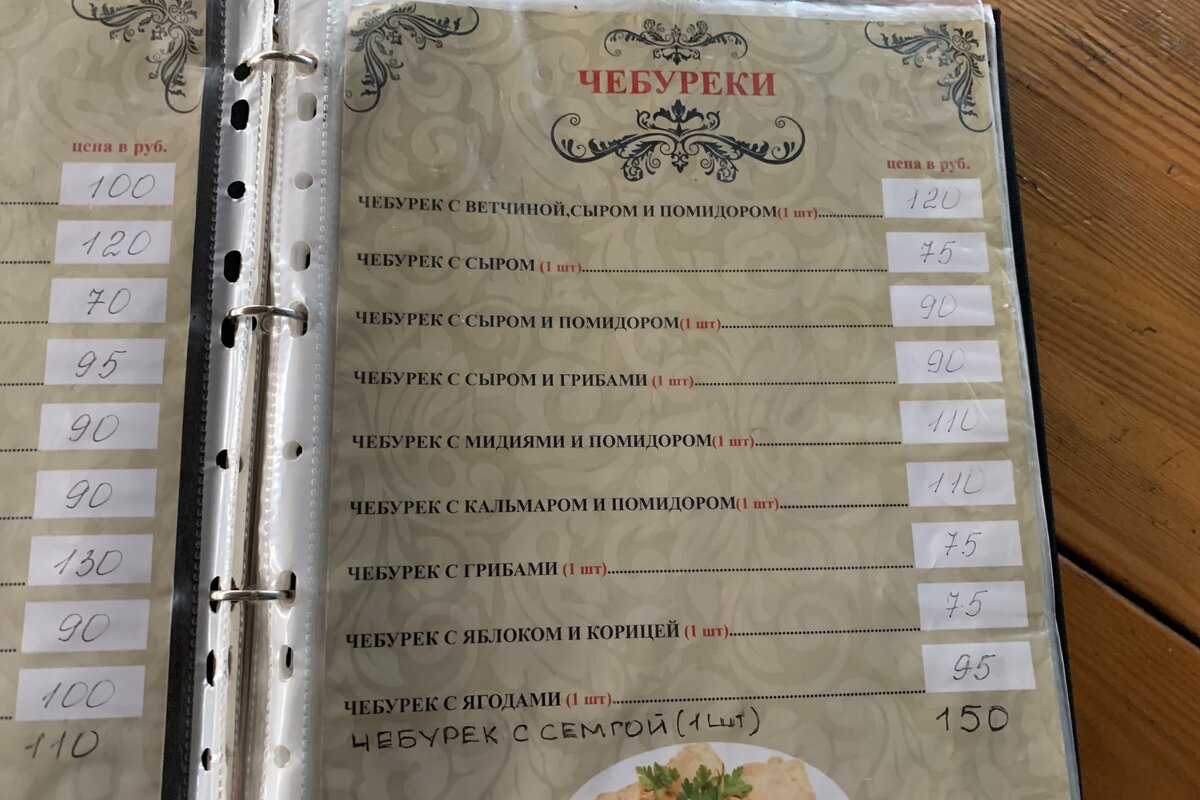 цена в руб.
100
120
70
95
90
90
130
90
100
110
ЧЕБУРЕКИ
цена в руб.
ЧЕБУРЕК С ВЕТЧИНОЙ,СЫРОМ И ПОМИДОРОМ(1 шт)..................120
ЧЕБУРЕК С СЫРОМ (1 шт)..................75
ЧЕБУРЕК С СЫРОМ И ПОМИДОРОМ(1 шт)..................90
ЧЕБУРЕК С СЫРОМ И ГРИБАМИ (1 шт)..................90
ЧЕБУРЕК С МИДИЯМИ И ПОМИДОРОМ(1 шт)..................110
ЧЕБУРЕК С КАЛЬМАРОМ И ПОМИДОРОМ(1 шт)..................110
ЧЕБУРЕК С ГРИБАМИ (1 шт)..................75
ЧЕБУРЕК С ЯБЛОКОМ И КОРИЦЕЙ (1 шт)..................75
ЧЕБУРЕК С ЯГОДАМИ (1 шт)..................95
ЧЕБУРЕК С СЕМГОЙ (1 шт) 150